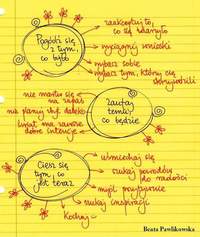 zaakceptuj to,
co się zdarzyło
Pogódź się
z tym,
co było
wyciągnij wnioski
wybacz sobie
wybacz tym, którzy cię
skrzywdzili
nie martw się
na zapas
nie planuj zbyt daleko
świat ma zawsze
dobre intencje
Zaufaj
temu,
co będzie
Ciesz się
tym, co
jest teraz
uśmiechaj się
szukaj powodów
do radości
myśl pozytywnie
szukaj inspiracji
Kochaj
Beata Pawlikowska